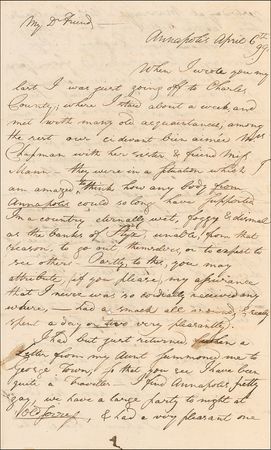 My Dr Friend
Annapolis April 6th 99
When I wrote you my
last I was just going off to Charles
County, where I staid about a week and
met with many old acquaintances, among
the rest our cidevant bien aimée Mrs
Chapman with her sister & friend Miss
Mann — they were in a situation which
am amazed to think how any body from
Annapolis could so long have supported
In a country eternally wet, foggy & dismal
as the banks of Styx, unable, from that
reason, to go out themselves, or to expect to
see others — Partly to this, you may
attribute, if you please, my assurance
that I never was so well received any
where, — had a smack all around, & really
spent a day or two very pleasantly.
I had but just returned when a
Letter from my Aunt summoned me to
George Town, so that you see I have been
quite a traveller — I find Annapolis pretty
gay, we have a large party to night at
& had a very pleasant one